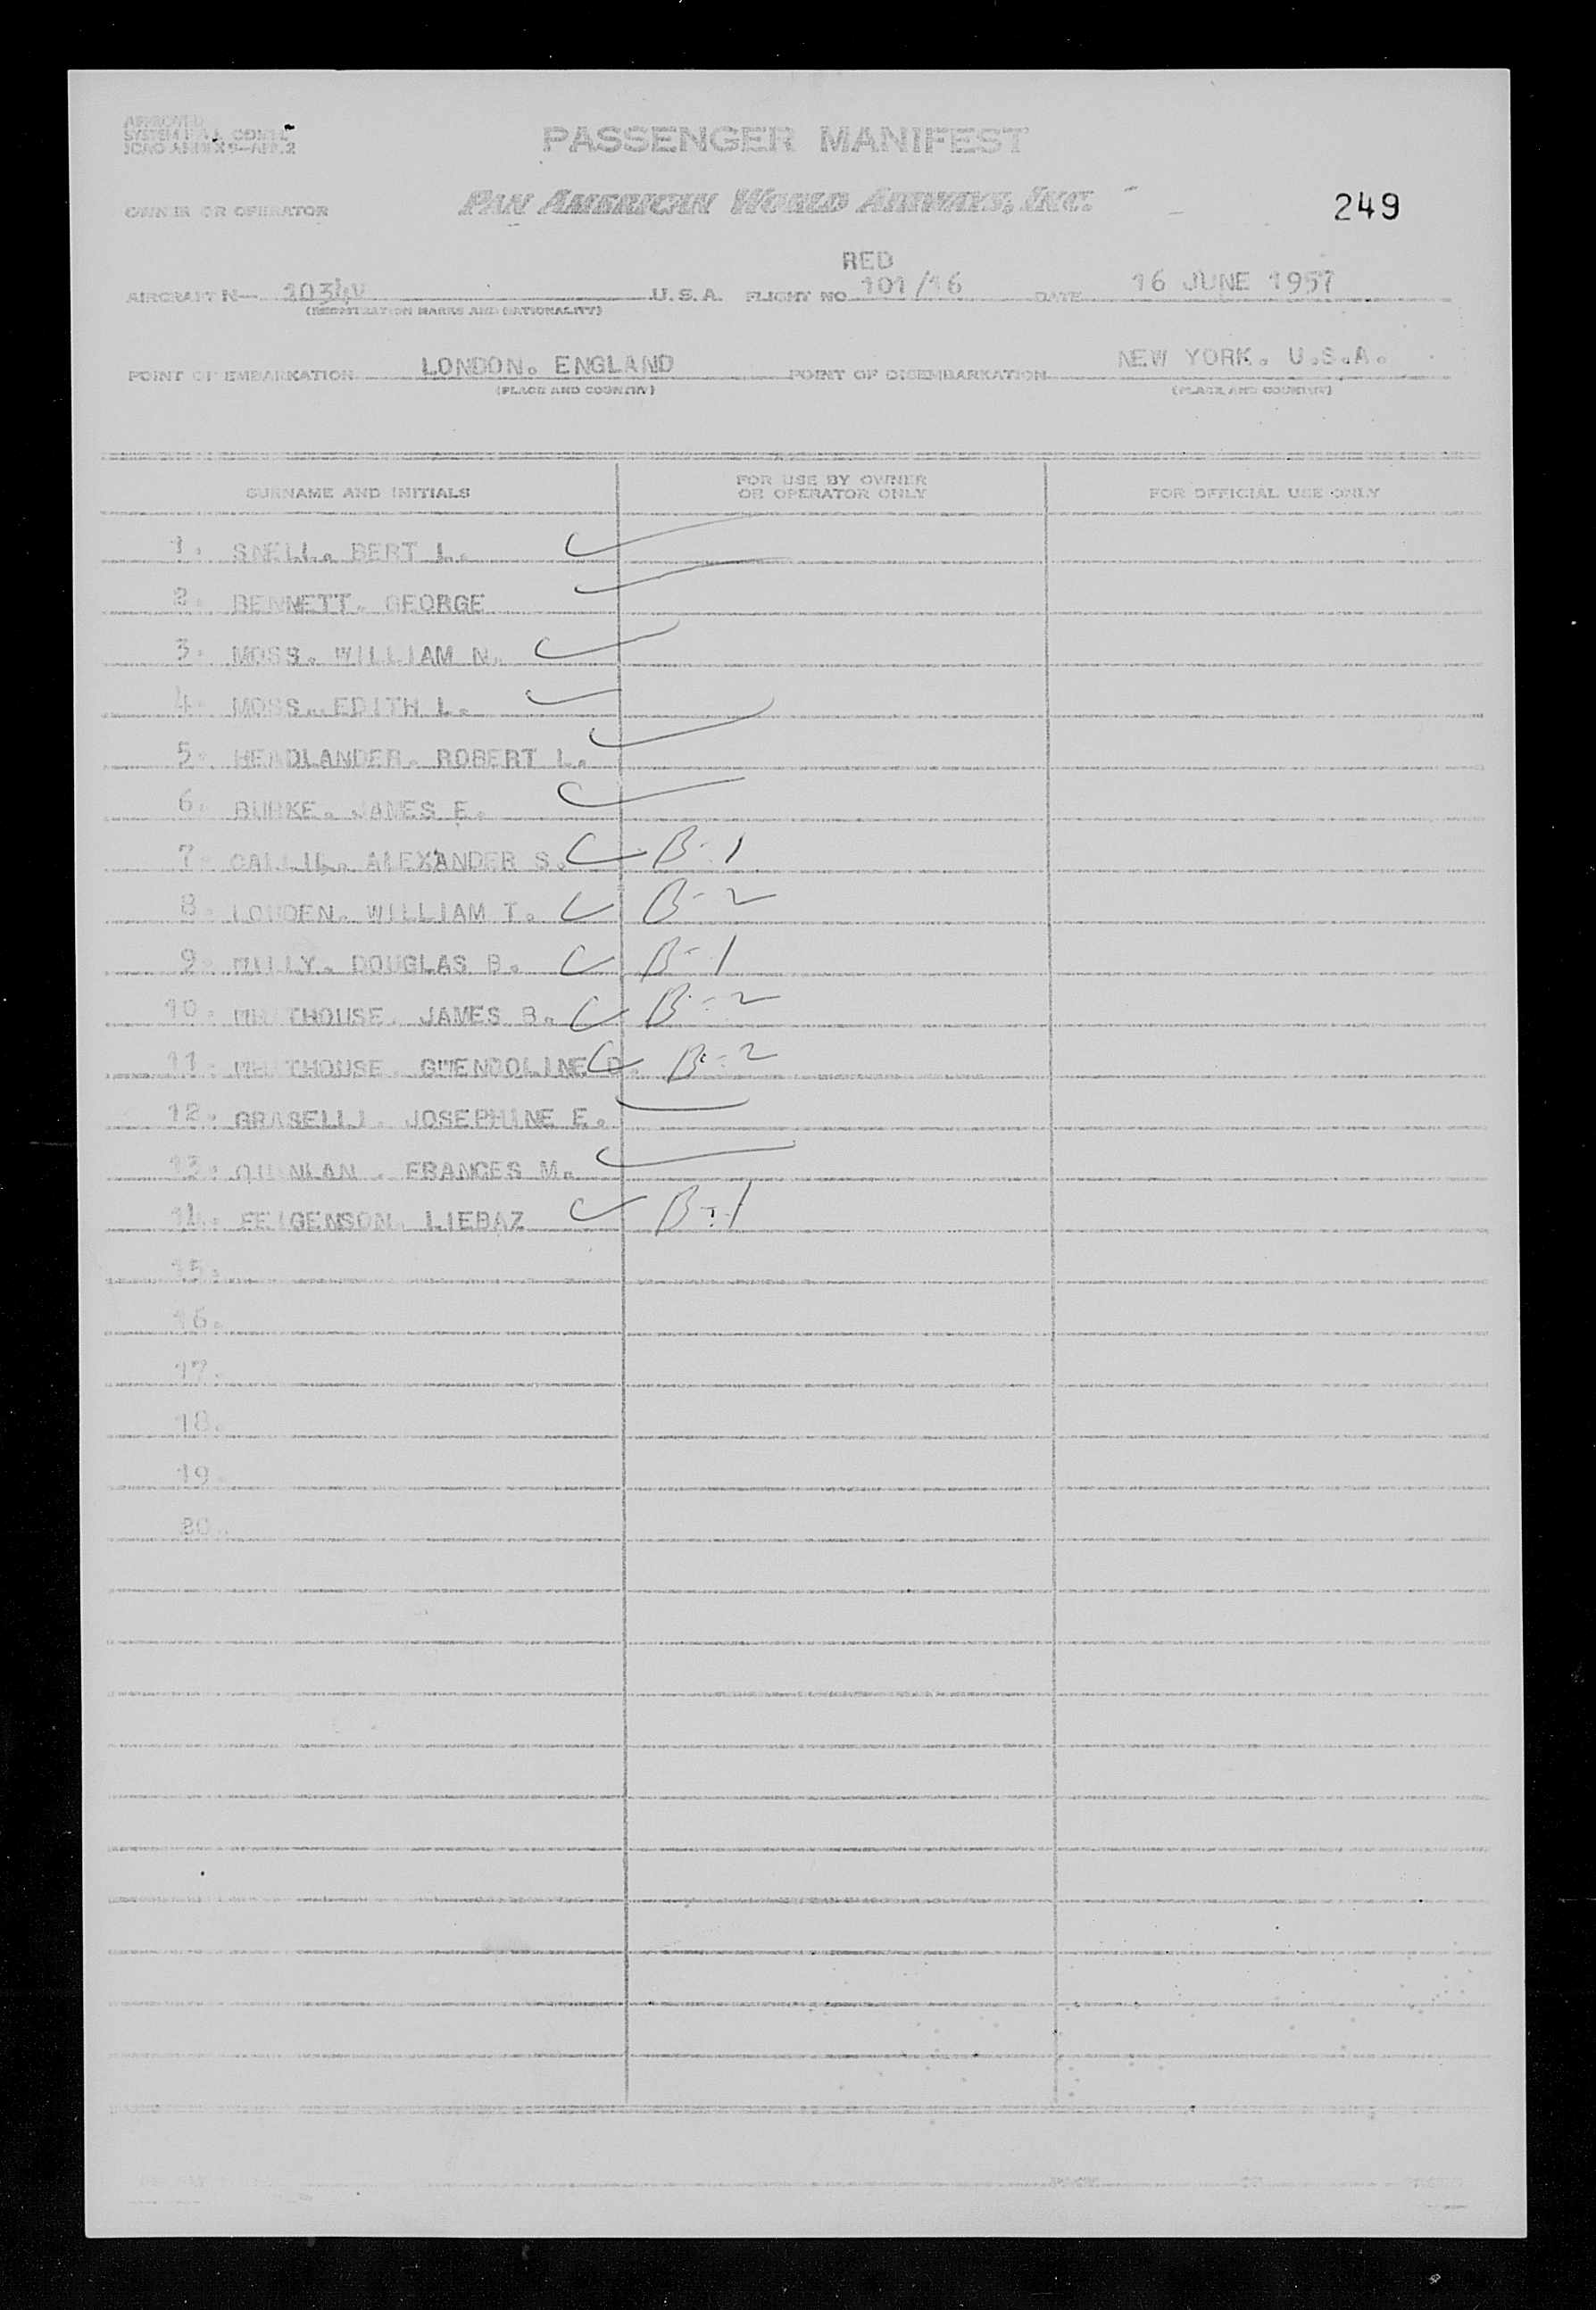 APPROVED
PASSENGER MANIFEST
OWNER OR OPERATOR
PAN AMERICAN WORLD AIRWAYS, INC.
249
RED
AIRCRAFT N— 1034V U.S.A. FLIGHT NO 101/16 DATE 16 JUNE 1957
(REGISTRATION MARKS AND NATIONALITY)
POINT OF EMBARKATION LONDON. ENGLAND POINT OF DISEMBARKATION NEW YORK. U.S.A.
(PLACE AND COUNTRY) (PLACE AND COUNTRY)
SURNAME AND INITIALS FOR USE BY OWNER OR OPERATOR ONLY FOR OFFICIAL USE ONLY
1. SNELL. BERT L.
2. BENNETT. GEORGE
3. MOSS. WILLIAM N.
4. MOSS. EDITH L.
5. HEADLANDER. ROBERT L.
6. BURKE. JAMES E.
7. ALEXANDER S. B-1
8. LOUDEN. WILLIAM T. B-2
9. DOUGLAS B. B-1
10. JAMES B. B-2
11. GWENDOLINE D. B-2
12. GRASELLI. JOSEPHINE E.
13. QUINLAN. FRANCES M.
14. FEIGENSON. LIEBAZ B-1
15.
16.
17.
18.
19.
20.